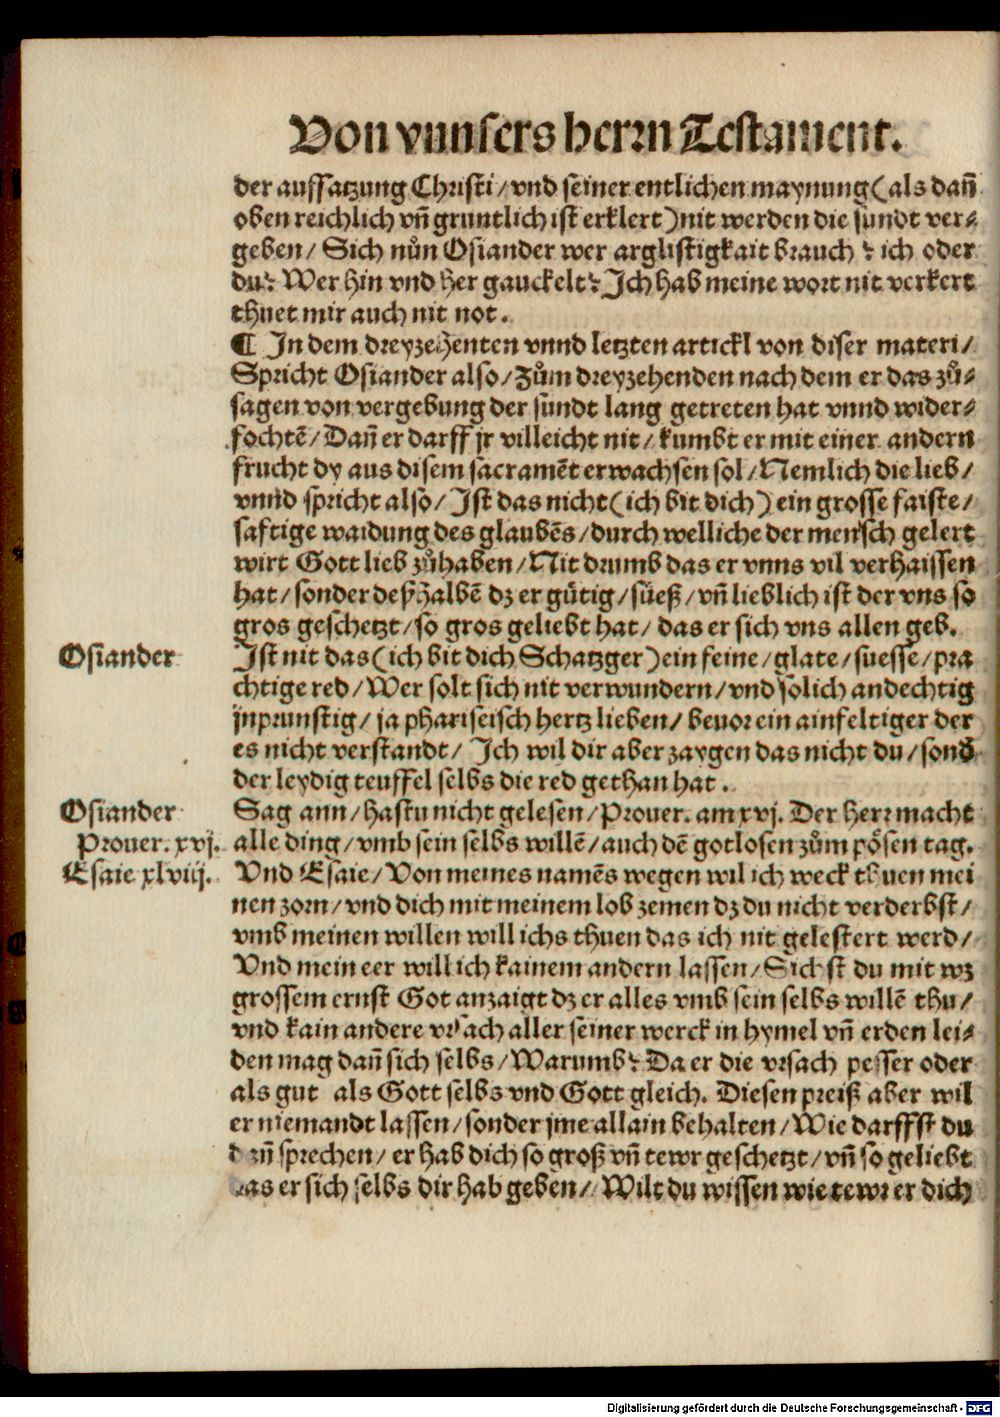 Von vnnsers herrn Testament.
der auffsatzung Christi/ vnd seiner entlichen maynung (als dañ
oben reichlich vñ gruntlich ist erklert) nit werden die sundt ver⸗
geben/ Sich nůn Osiander wer arglistigkait brauch? ich oder
du? Wer hin vnd her gauckelt? Ich hab meine wort nit verkert
thuet mir auch nit not.
¶ In dem dreyzehenten vnnd letzten artickl von diser materi/
Spricht Osiander also/ Zům dreyzehenden nach dem er das zů⸗
sagen von vergebung der sundt lang getreten hat vnnd wider⸗
fochtē/ Dañ er darff jr villeicht nit/ kumbt er mit einer andern
frucht dy aus disem sacramēt erwachsen sol/ Nemlich die lieb/
vnnd spricht also/ Ist das nicht (ich bit dich) ein grosse faiste/
saftige waidung des glaubēs/ durch welliche der mensch gelert
wirt Gott lieb zůhaben/ Nit drumb das er vnns vil verhaissen
hat/ sonder deßhalbē dz er gütig/ süeß/ vñ lieblich ist der vns so
gros geschetzt/ so gros geliebt hat/ das er sich vns allen geb.
Osiander Ist nit das (ich bit dich Schatzger) ein feine/ glate/ suesse/ pra
chtige red/ Wer solt sich nit verwundern/ vnd solich andechtig
jnprunstig/ ja phariseisch hertz lieben/ beuor ein ainfeltiger der
es nicht verstandt/ Ich wil dir aber zaygen das nicht du/ sond
der leydig teuffel selbs die red gethan hat.
Osiander Sag ann/ hastu nicht gelesen/ Prouer. am xvj. Der herr macht
Prouer. xvj. alle ding/ vmb sein selbs willē/ auch dē gotlosen zům pösen tag.
Esaie xlviij. Vnd Esaie/ Von meines namēs wegen wil ich weck thuen mei
nen zorn/ vnd dich mit meinem lob zemen dz du nicht verderbst/
vmb meinen willen will ichs thuen das ich nit gelestert werd/
Vnd mein eer will ich kainem andern lassen/ Sichst du mit wz
grossem ernst Got anzaigt dz er alles vmb sein selbs willē thu/
vnd kain andere vrsach aller seiner werck in hymel vñ erden lei⸗
den mag dañ sich selbs/ Warumb? Da er die vrsach pesser oder
als gut als Gott selbs vnd Gott gleich. Diesen preiß aber wil
er niemandt lassen/ sonder jme allain behalten/ Wie darffst du
dañ sprechen/ er hab dich so groß vñ tewr geschetzt/ vñ so geliebt
das er sich selbs dir hab geben/ Wilt du wissen wie tewr er dich
Digitalisierung gefördert durch die Deutsche Forschungsgemeinschaft - DFG